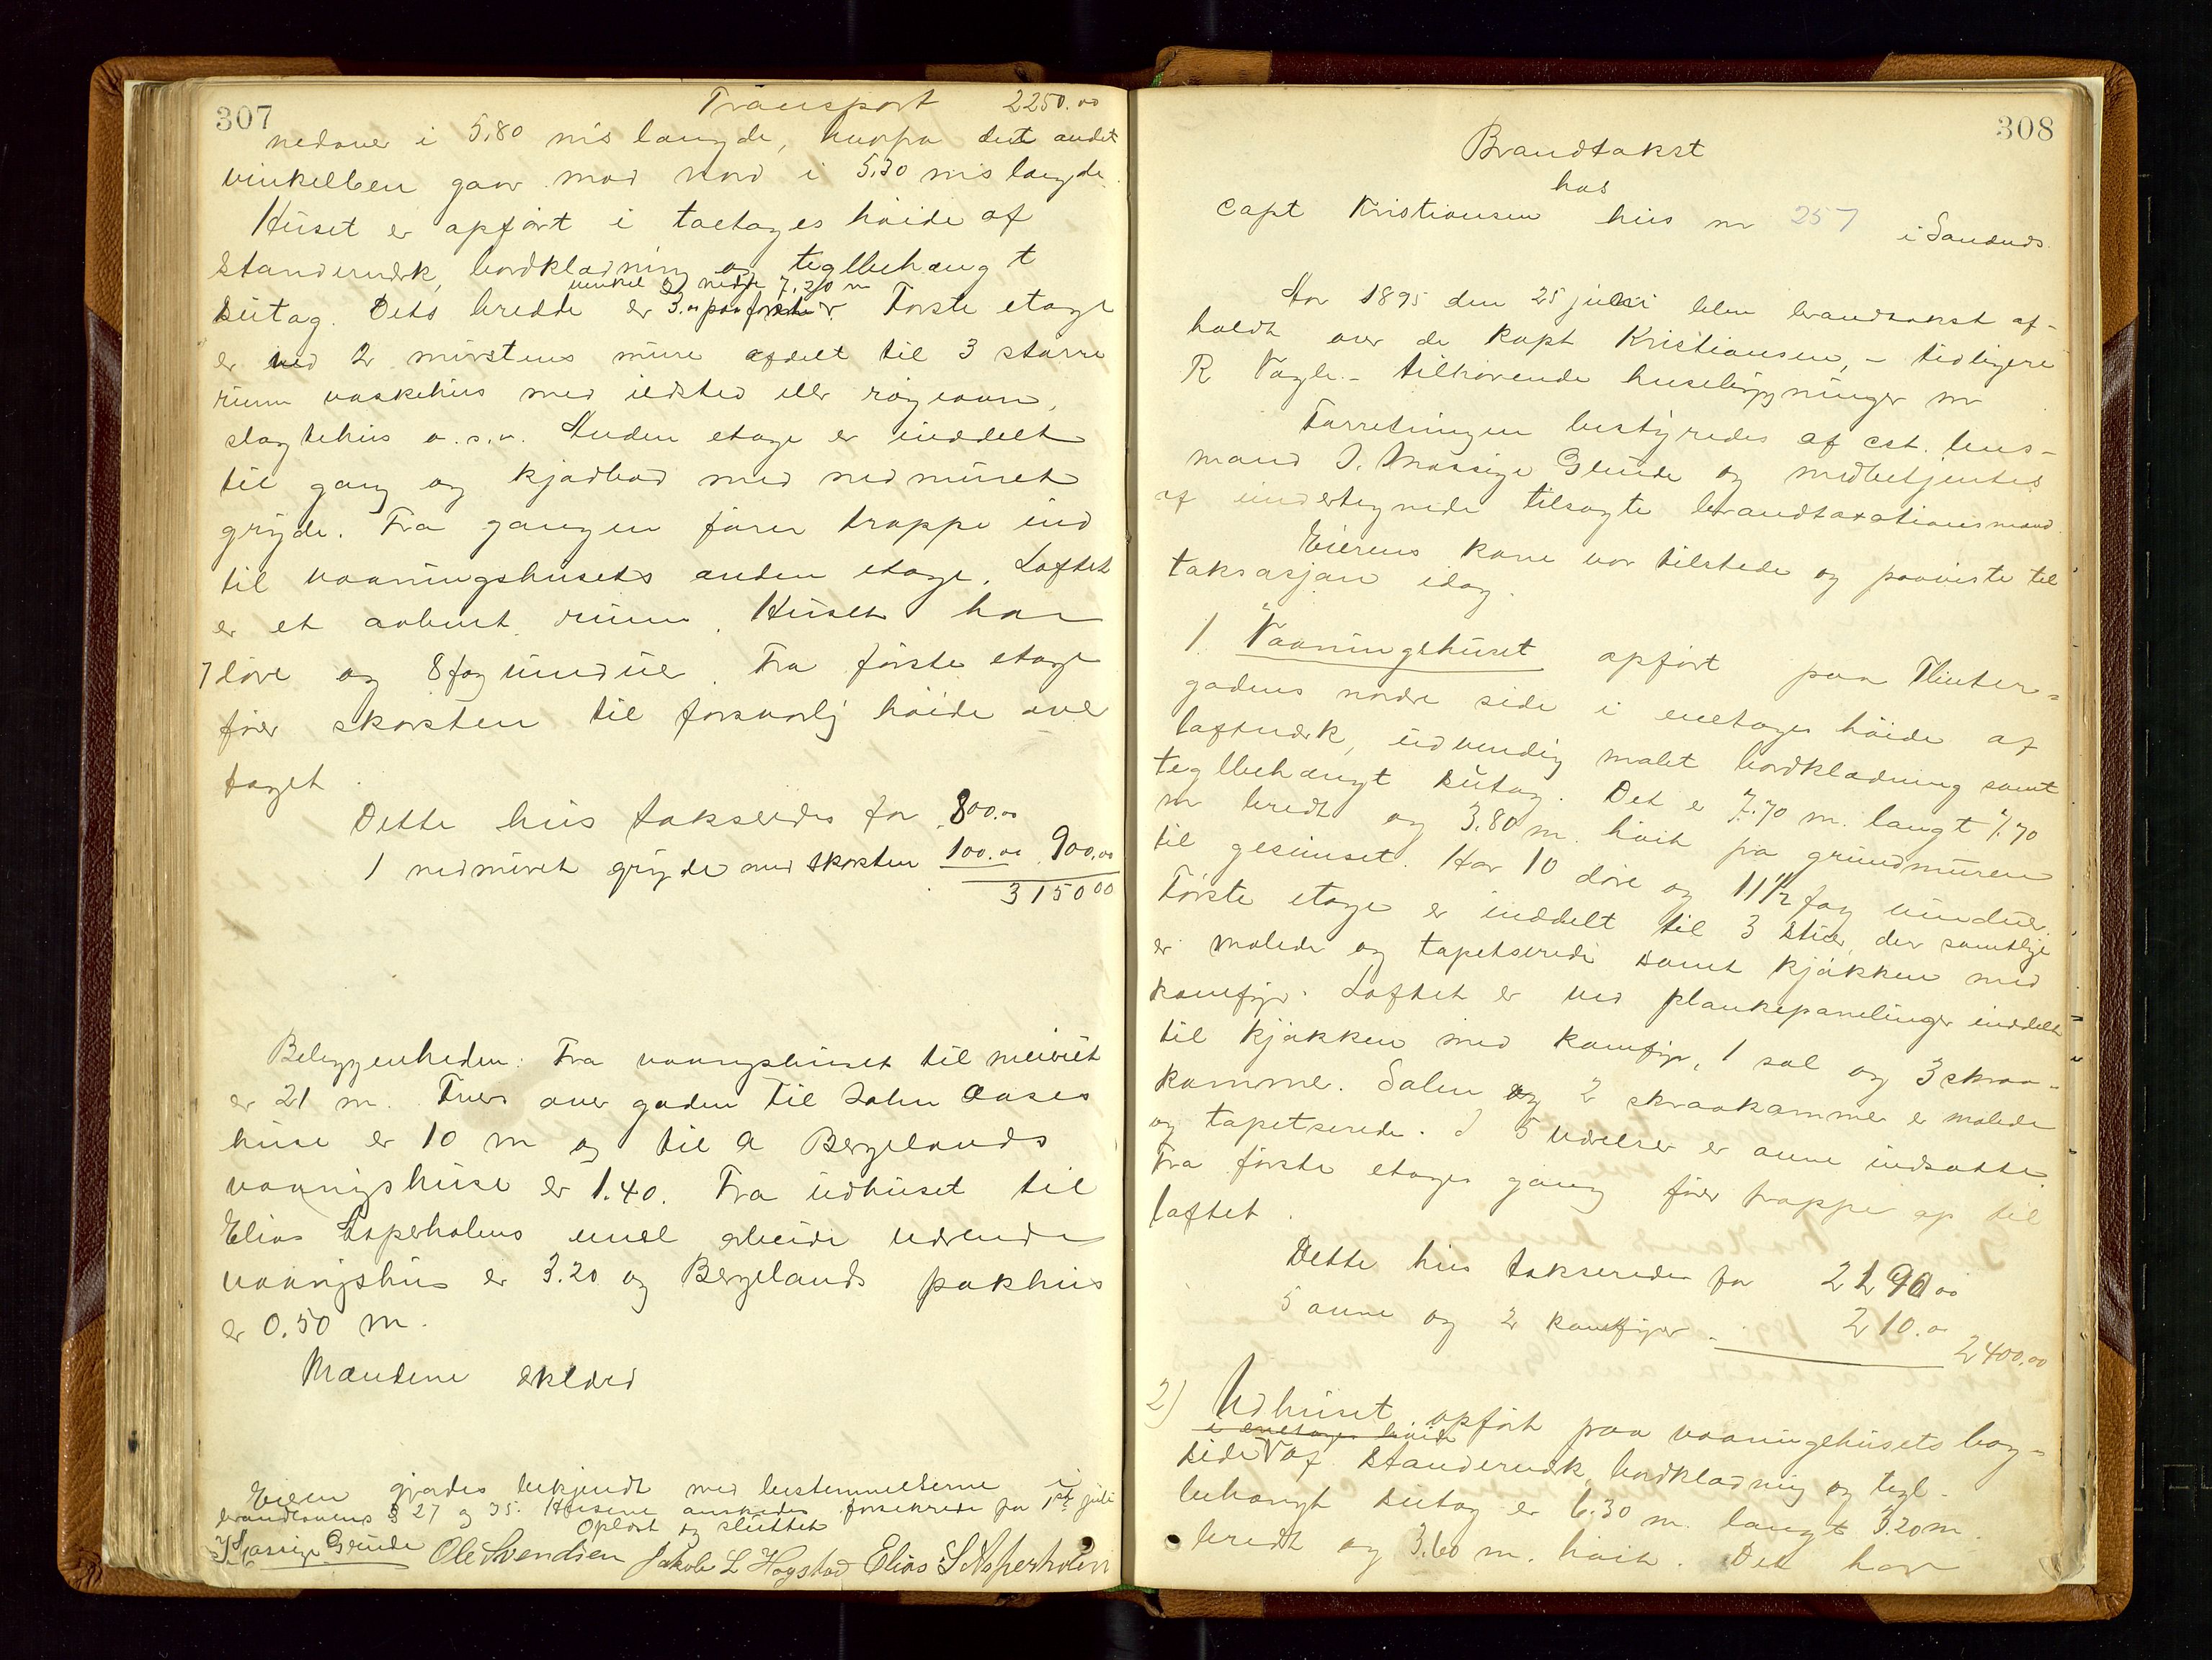 307
Transport 2250.00
nedover i 5.80 ms længde, hvorpaa det andet
vinkelben gaar mod nord i 5.30 ms længde.
Huset er opført i toetages høide af
standerverk, bordklædning og teglbehængt
vinkel nedre 7.20 m
sutag. Dets bredde er 3. Første etage
er ved 2 murstens mure afdelt til 3 større
rum vaskehus med ildsted eller røgeovn,
slagtehus o.s.v. Anden etage er inddelt
til gang og kjødbod med nedmuret
gryde. Fra gangen fører trappe ind
til vaaningshusets anden etage. Loftet
er et aabent rum. Huset har
7 døre og 8 fag vinduer. Fra første etage
fører skorsten til forsvarlig høide over
taget.
Dette hus takseredes for 800.00
1 nedmuret gryde med skorsten 100.00 900.00
3150 00
Beliggenheden: Fra vaaningshuset til meieriet
er 21 m. Tvers over gaden til John Aases
huse er 10 m og til A Bergelands
vaaningshuse er 1.40. Fra udhuset til
Elias Asperholens under arbeide værende
vaaningshus er 3.20 og Bergelands pakhus
er 0.50 m.
Mændene erklæred
Eieren gjordes bekjendt med bestemmelserne i
brandlovens § 27 og 35. Husene ønskedes forsikrede fra 1ste juli
Oplæst og sluttet
Massige Grude Ole Svendsen Jakob L Høgstad Elias S Asperholen
308
Brandtakst
hos
Capt Kristiansen hus no 257 i Sandnes.
Aar 1895 den 25 juli blev brandtakst af-
holdt over de Kapt Kristiansen, - tidligere
R Vagle - tilhørende husebygninger no
Forretningen bestyredes af cst. lens-
mand I. Massige Grude og medbetjentes
af undertegnede tilsagte brandtaxationsmænd.
Eierens kone var tilstede og paaviste til
taksasjon idag.
1. Vaaningehuset opført paa Flinter-
gadens nordre side i enetages høide af
laftverk, udvendig malet bordklædning samt
teglbehængt sutag. Det er 7.70 m. langt 7.70
m bredt og 3.80 m. høit fra grundmuren
til gesimset. Har 10 døre og 11 1/2 fag vinduer.
Første etage er inddelt til 3 stuer, der samtlige
er malede og tapetserede samt kjøkken med
komfyr. Loftet er ved plankepanelinger inddelt
til kjøkken med komfyr, 1 sal og 3 skraa-
kammer. Salen og 2 skraakammer er malede
og tapetserede. I 5 værelser er ovne indsatte.
Fra første etages gang fører trappe op til
loftet.
Dette hus takseredes for 2190 00
5 ovne og 2 komfyrer 210.00
2400.00
2) Udhuset opført paa vaaningehusets bag-
i enetages høide
side af standerverk, bordklædning og tegl-
behængt sutag er 6.30 m. langt 3.20 m.
bredt og 3.60 m. høit. Det har